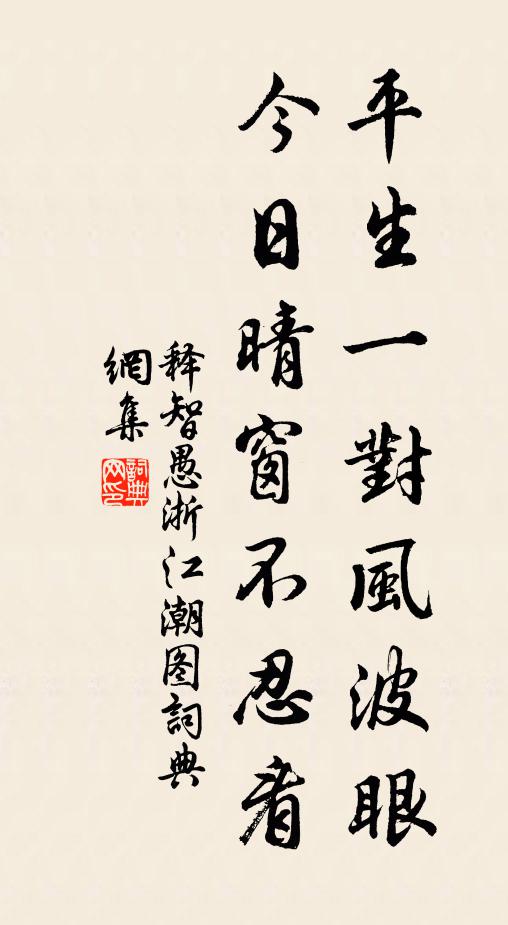 平生一對風波眼
今日晴窗不忍看
释智愚浙江潮图詞典
網集
詞典
网印